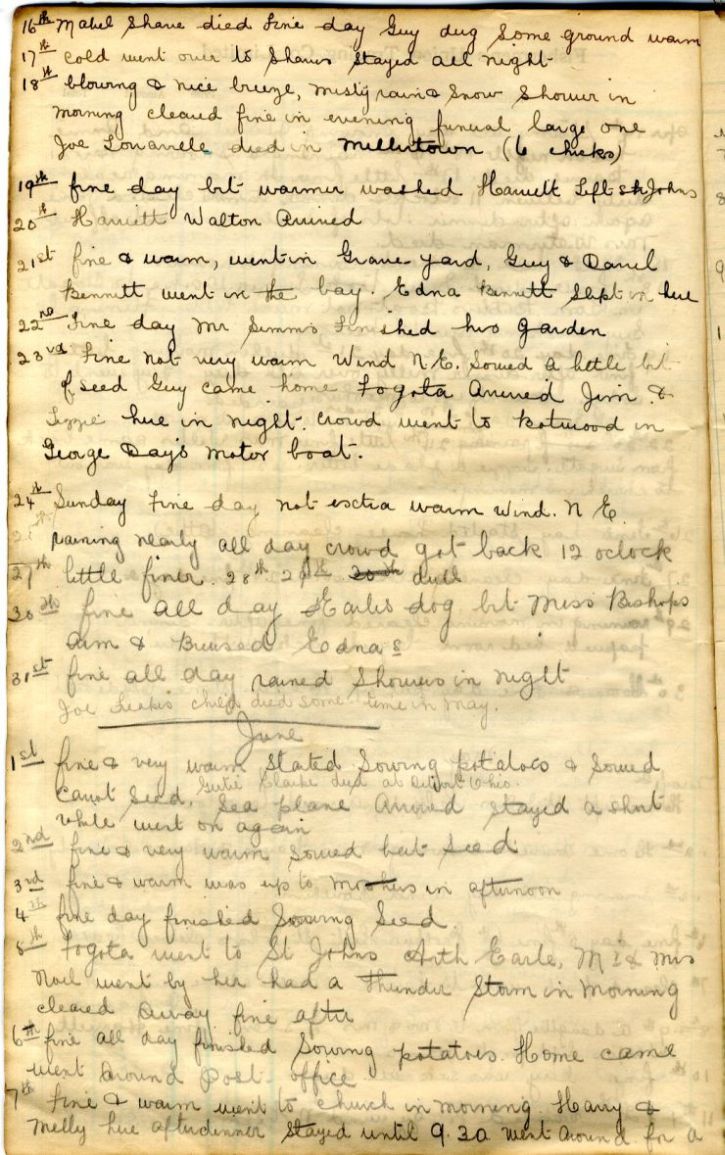 16th Mabel Shave died Fine day Guy dug some ground warm
17th cold went over to Shaves stayed all night
18th blowing & nice breeze, misty rain & Snow Shower in
morning cleared fine in evening funeral large one
Joe died in Millertown (6 chicks)
19th fine day but warmer washed Harriett Left St Johns
20th Harriett Walton Arrived
21st fine & warm, went in Grave yard, Guy & Darrel
Bennett went in the bay. Edna Bennett Slept in here
22nd Fine day Mr Simms Finished his garden
23rd Fine not very warm Wind N E. Sowed a little bit
of seed Guy came home Fogota Arrived Jim &
Lizzie here in night. crowd went to Botwood in
George Day's motor boat.
24th Sunday Fine day not extra warm wind. N E.
raining nearly all day crowd got back 12 oclock
27th little finer. 28th 29th 30th dull
30th fine all day Earles dog bit Miss Bishops
arm & Bruised Ednas
31st fine all day rained Showers in night
Joe child died some time in May.
June
1st fine & very warm Stated Sowing potatoes & Sowed
Gertie Clarke died at Ohio.
carrot Seed. Sea plane Arrived stayed a short
while went on again
2nd fine & very warm Sowed beet Seed
3rd fine & warm was up to Mothers in afternoon
4th fine day finished Sowing Seed
5th Fogota went to St Johns Arth Earle, Mr & Mrs
Noel went by her had a Thunder Storm in Morning
cleared away fine after
6th fine all day finished Sowing potatoes. Home came
went around Post office
7th Fine & warm went to church in morning. Harry &
Melly here afterdinner stayed until 9.30 went around for a